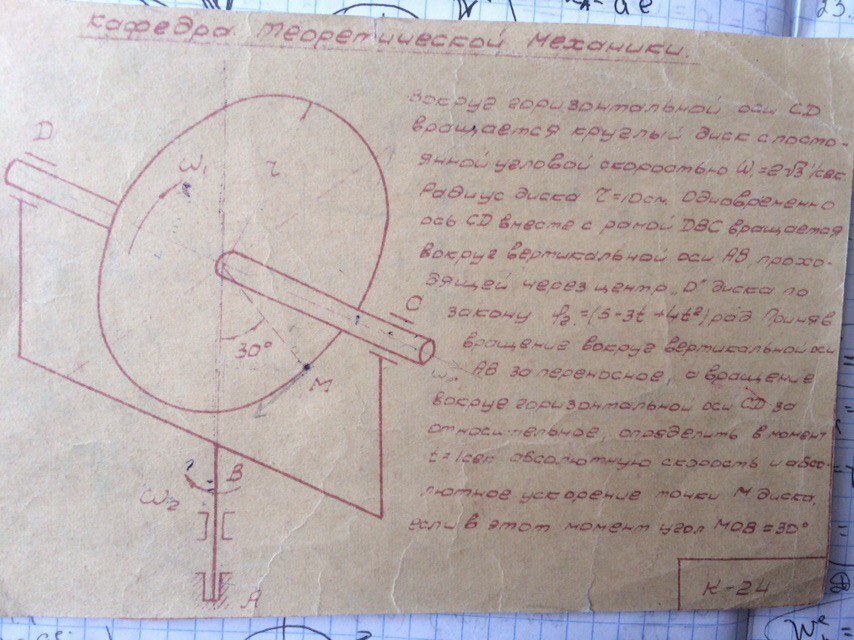 кафедра теоретической механики.
вокруг горизонтальной оси CD
вращается круглый диск с посто-
янной угловой скоростью ω₁=2√3 1/сек
Радиус диска r=10см. Одновременно
ось CD вместе с рамой DBC вращается
вокруг вертикальной оси AB, прохо-
дящей через центр „D" диска по
закону φ₂=(5-3t+4t²) рад Приняв
вращение вокруг вертикальной оси
AB за переносное, а вращение
вокруг горизонтальной оси CD за
относительное, определить в момент
t=1сек абсолютную скорость и абсо-
лютное ускорение точки M диска,
если в этот момент угол MOB=30°
K-24
D
ω₁
r
C
30°
M
B
ω₂
A
23.